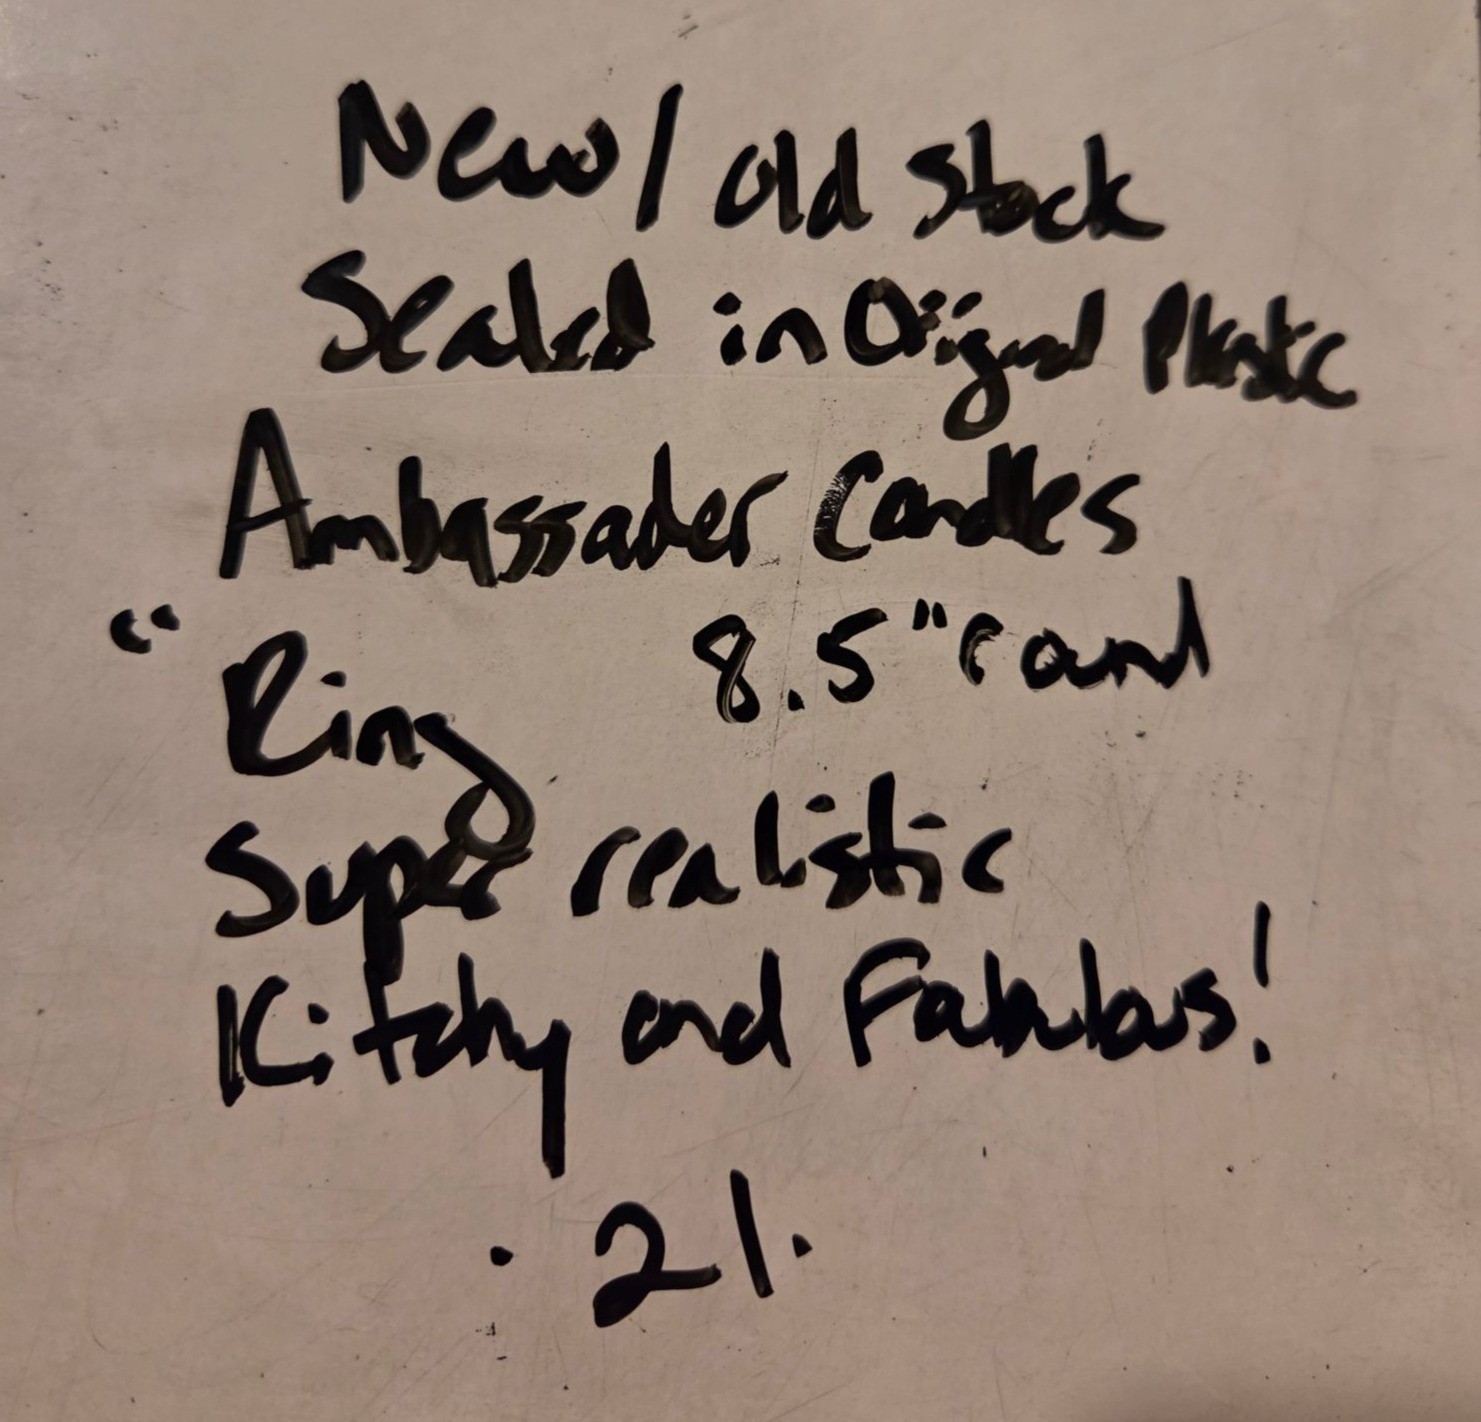 New/ old stock
Sealed in Original Plastic
Ambassader Candles
" Ring 8.5" round
Super realistic
Kitchy and Fabulous!
. 21.